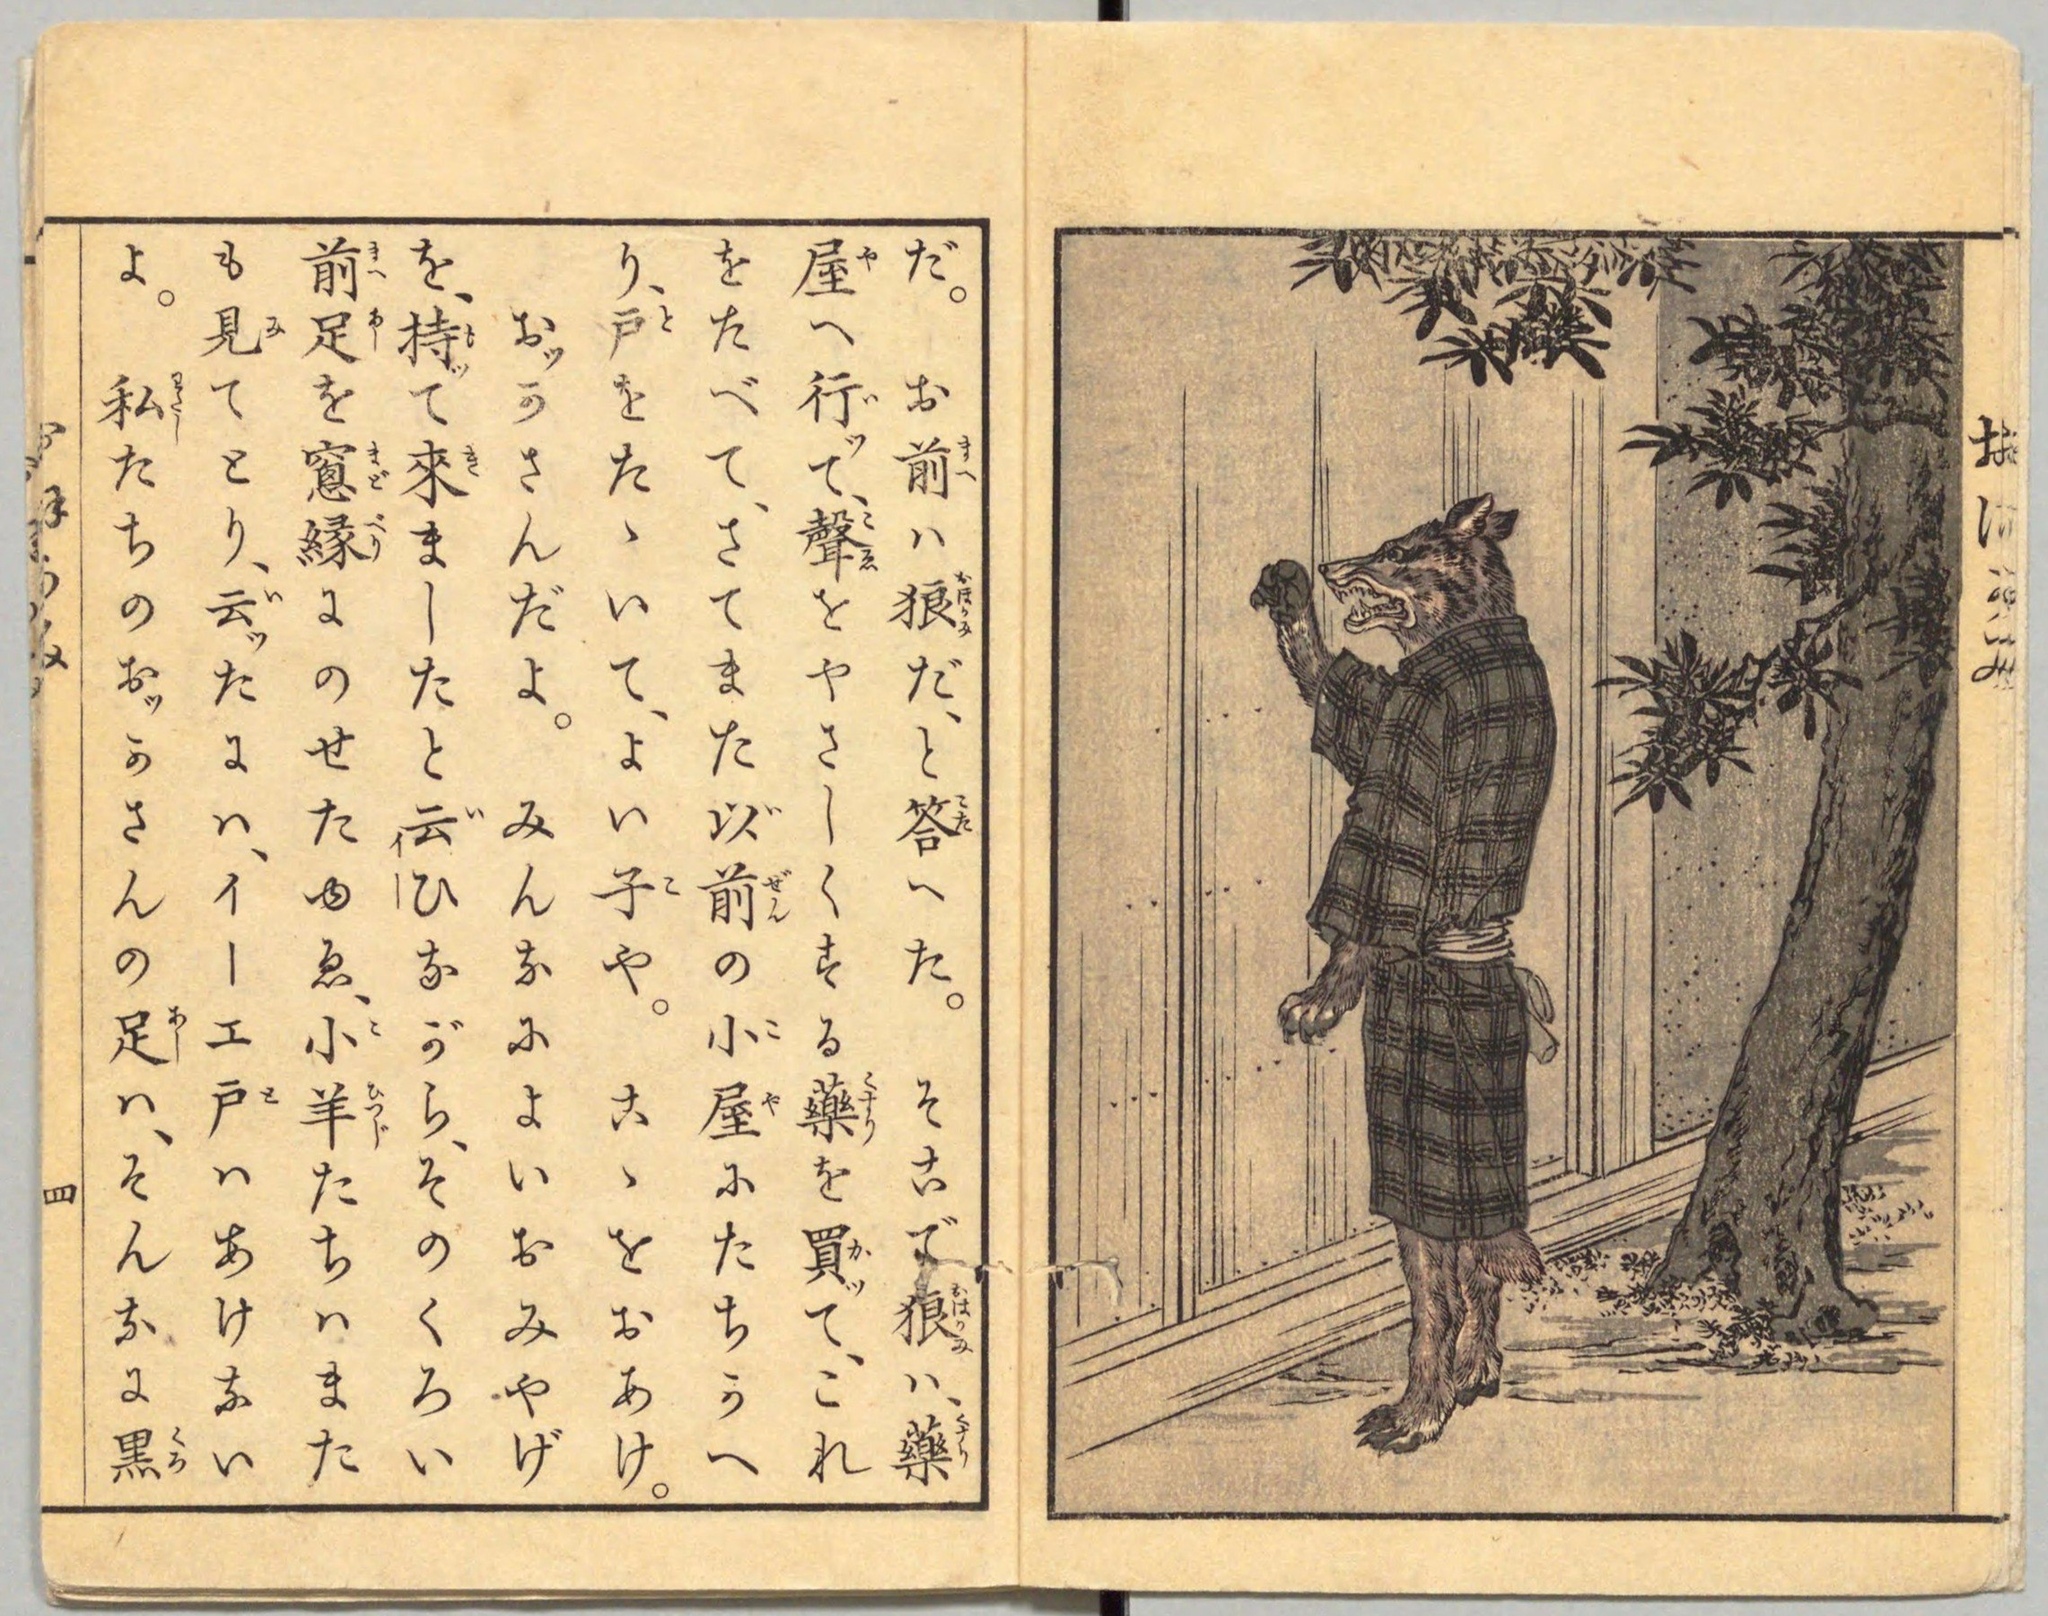 だ。　お前ハ狼だ、と答へた。　そこで狼ハ、藥
屋へ行ッて、聲をやさしくする藥を買ッて、これ
をたべて、さてまた以前の小屋にたちかへ
り、戸をたゝいて、よい子や。　こゝをおあけ。
おッかさんだよ。　みんなによいおみやげ
を、持ッて來ましたと云ひながら、そのくろい
前足を窓縁にのせたゆゑ、小羊たちハまた
も見てとり、云ッたにハ、イーエ戸ハあけない
よ。　私たちのおッかさんの足ハ、そんなに黒
四